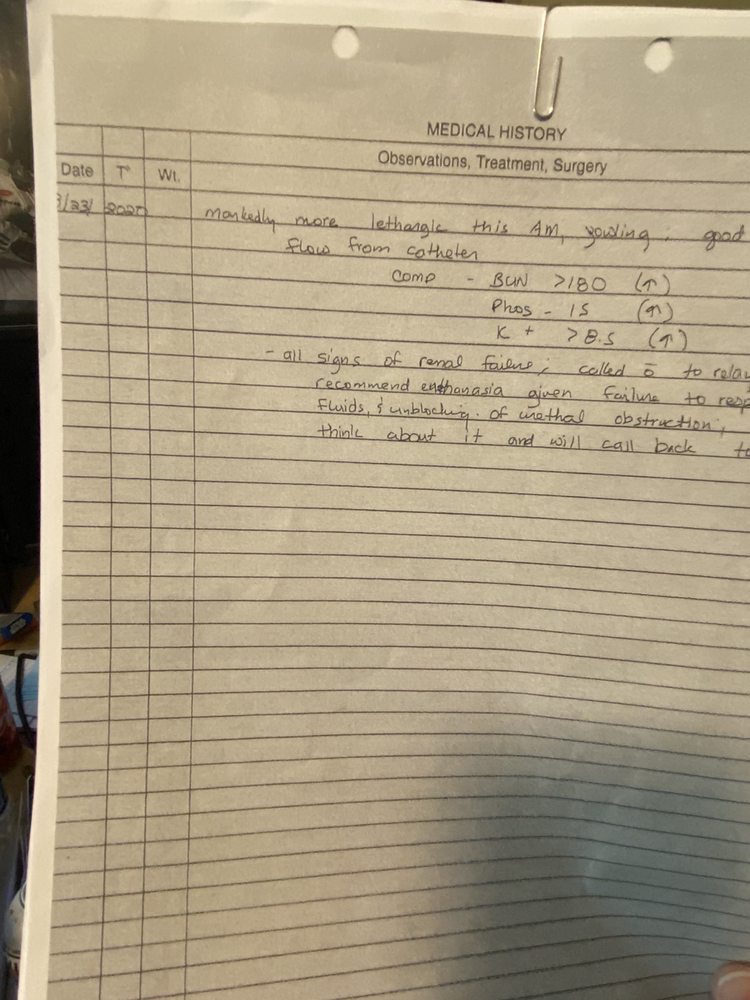 MEDICAL HISTORY
Observations, Treatment, Surgery
Date T° Wt.
3/23/ 2020 markedly more lethargic this AM, yowling; good
flow from catheter
Comp - BUN >180 (↑)
Phos - 15 (↑)
K+ >8.5 (↑)
- all signs of renal failure; called ō to relay
recommend euthanasia given failure to resp
fluids, & unblocking of urethal obstruction,
think about it and will call back to